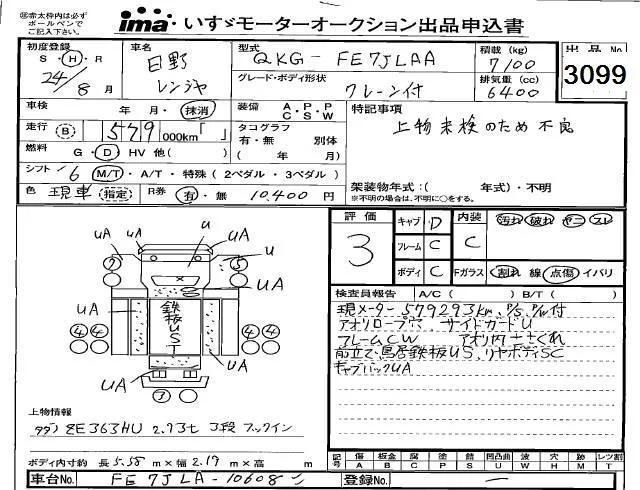 ㊟赤太枠内は必ず
ボールペンで
ご記入下さい。
ima いすゞモーターオークション出品申込書
初度登録 S・H・R 24/8月
車名 日野 レンジャ
型式 QKG- FE7JLAA
積載 (kg) 7100
出品No 3099
グレード・ボディ形状 クレーン付
排気量(cc) 6400
車検 年 月・抹消
装備 A・P・P C・S・W
特記事項
上物未検のため不良
走行 B 579 000km「 」
タコグラフ 有・無 別体 ( 年 月)
燃料 G・D・HV 他( )
シフト 6 M/T・A/T・特殊(2ペダル・3ペダル)
架装物年式:( 年式)・不明
※不明の場合は、不明に○をする。
色 現車 指定 R券 有・無 10,400円
評価 3
キャブ D 内装 C 汚れ 破れ ヤニ スレ
フレーム C
ボディ C Fガラス 割れ 線 点傷 イバリ
UA UA U U
UA UA
UA UA
鉄板UST
UA
検査員報告 A/C( ) B/T( )
現メーター579293km, P/S, P/W付
アオリロープ穴 サイドガードU
フレームCW アオリ内ササくれ
前立て・鳥居鉄板US, リヤボディSC
キャブバックUA
上物情報
タダノ ZE363HU 2.93t 3段 フックイン
ボディ内寸約 長 5.58 m×幅 2.19 m×高 m
記号 傷A 板金B 腐C 塗P 錆S 凹凸曲U 波W 穴H 跡M レツ割T
車台No FE7JLA-10608
登録No. ―